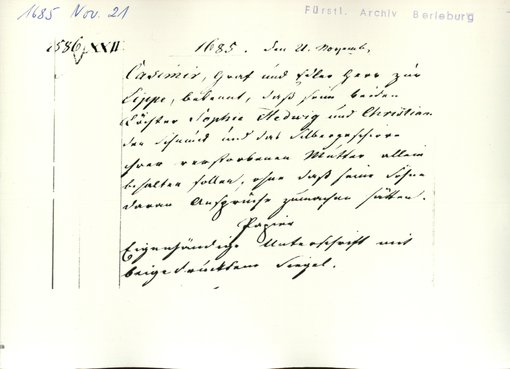 1685 Nov. 21
Fürstl. Archiv Berleburg
1586 XXII
1685. den 21. Novemb.
Casimir, Graf und Edler Herr zur
Lippe, bekennt, daß seine beiden
Töchter Sophie Hedwig und Christian
den Schmuck und das Silbergeschirr
ihrer verstorbenen Mutter allein
behalten sollen, ohne daß seine Söhne
daran Ansprüche zumachen hätten.
Papier
Eigenhändige Unterschrift mit
beigedrücktem Siegel.